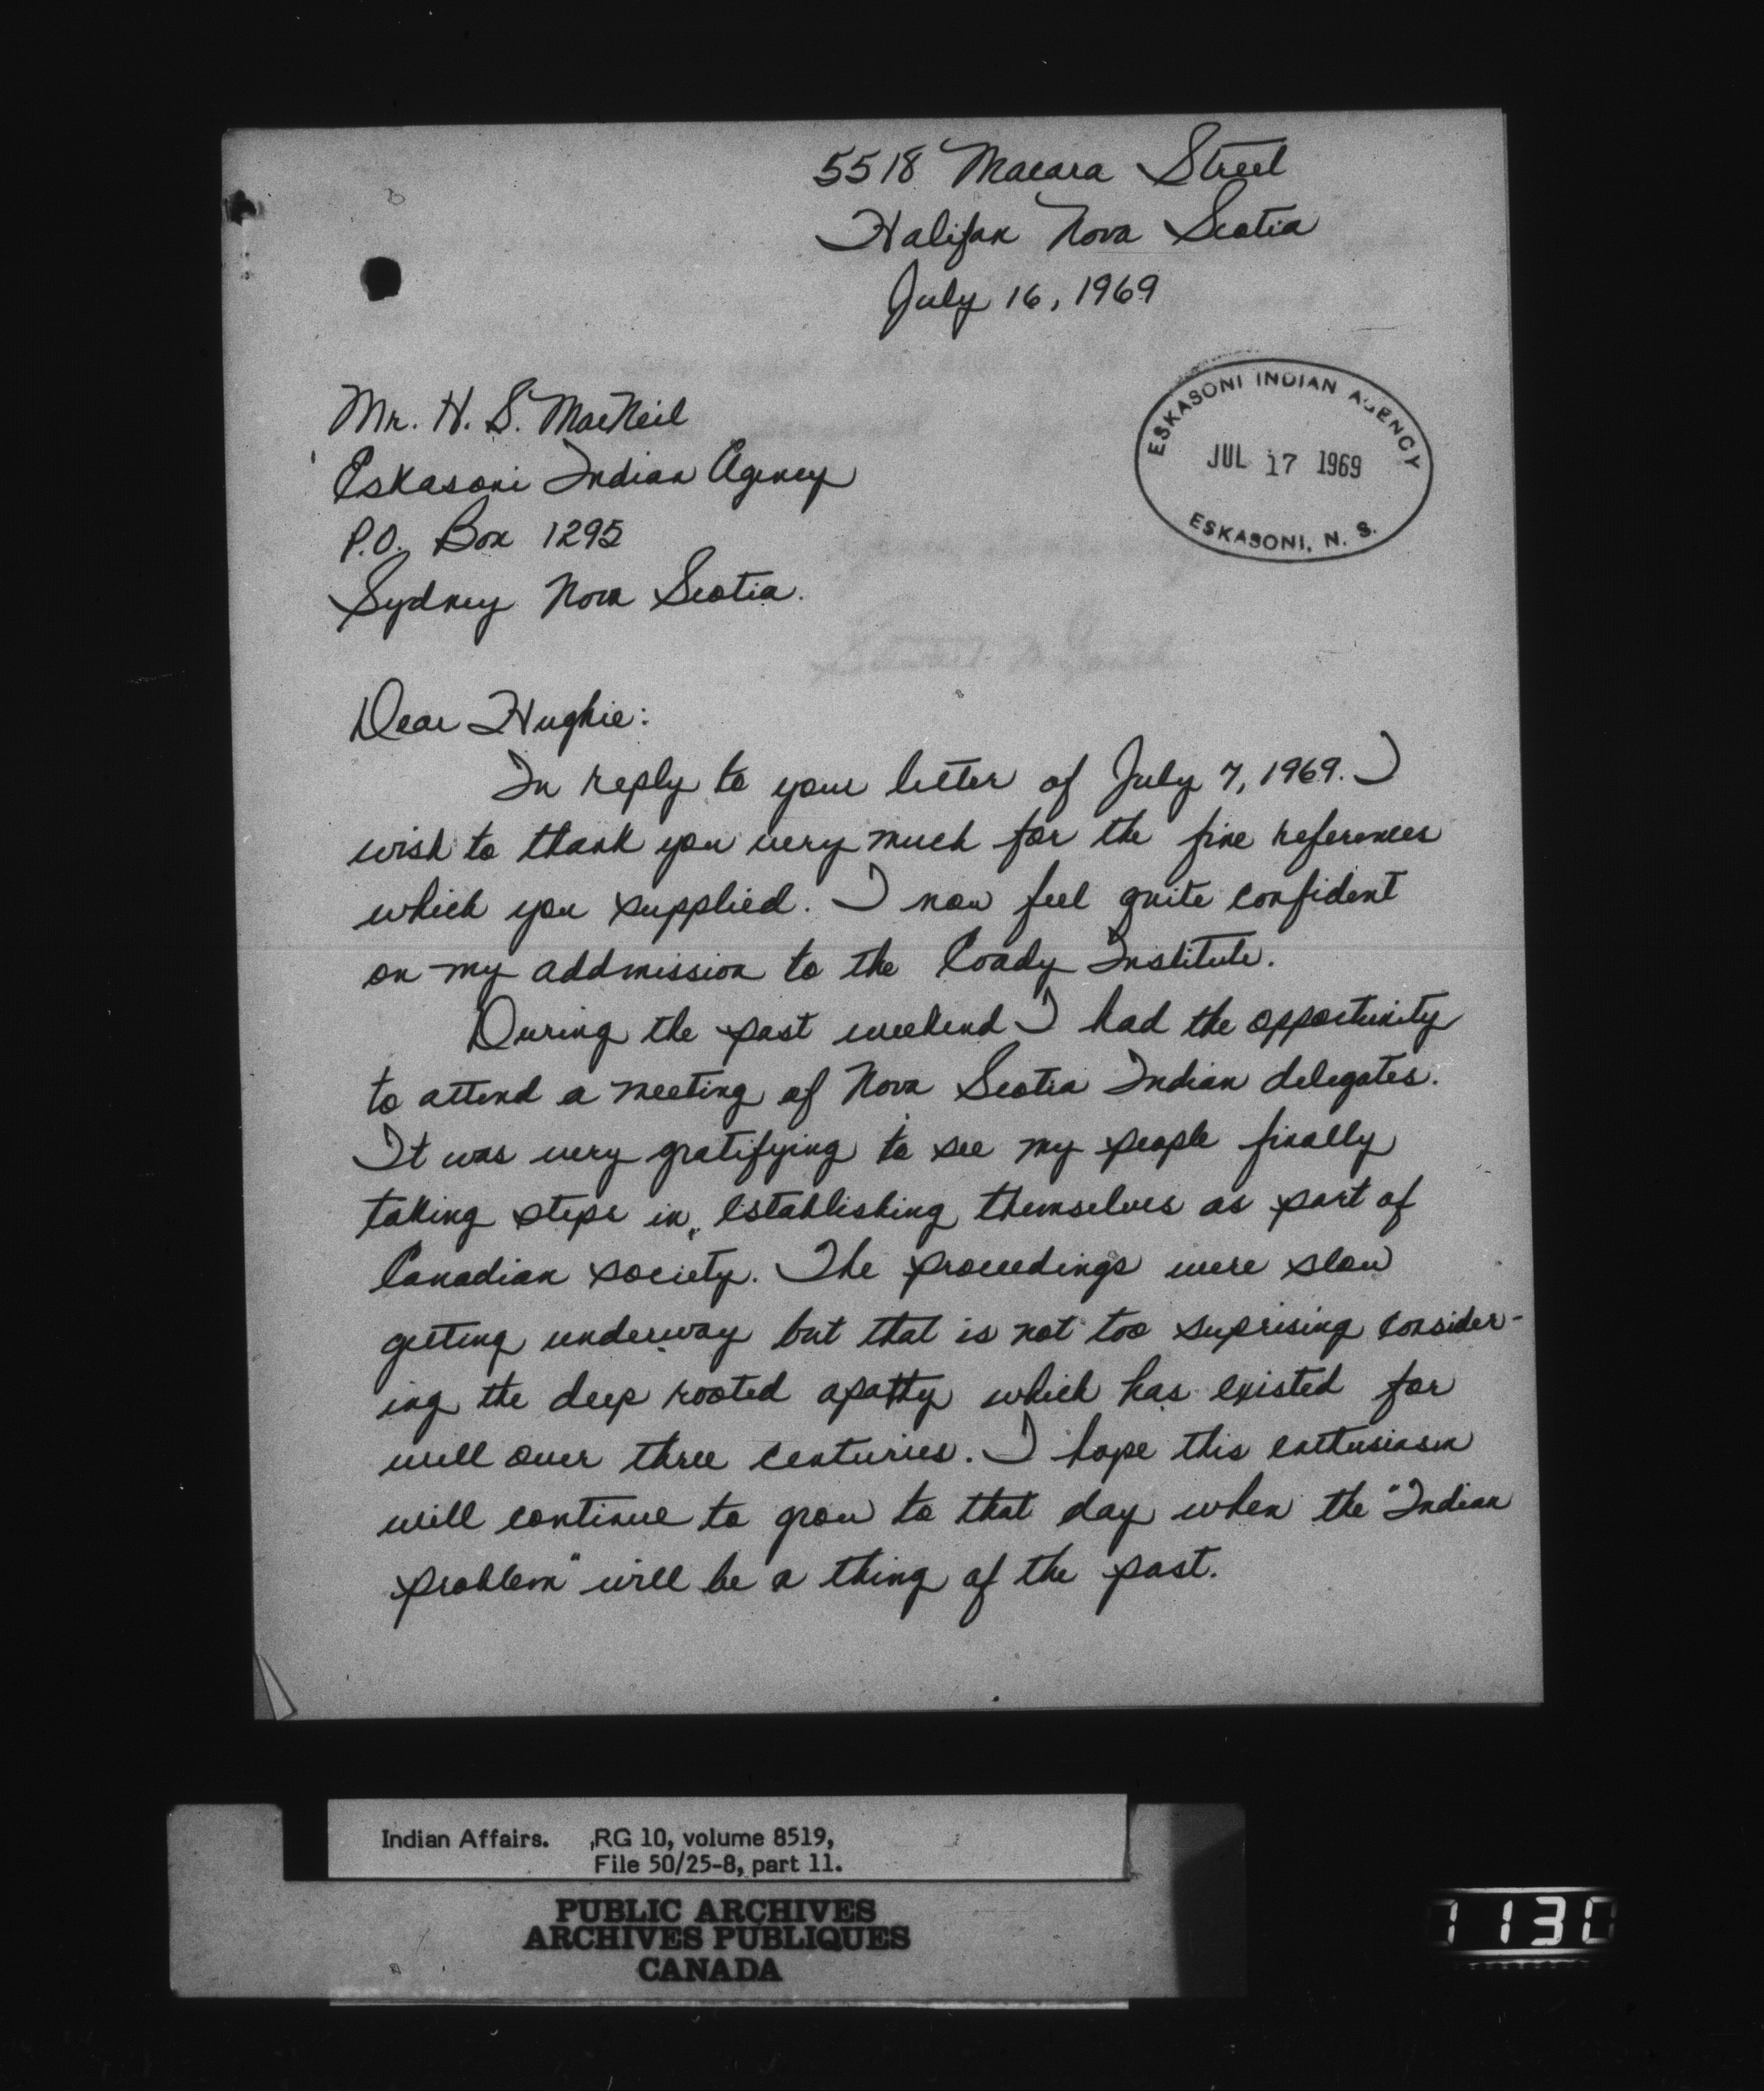 5518 Macara Street
Halifax Nova Scotia
July 16, 1969
Mr. H. S. MacNeil
Eskasoni Indian Agency
P.O. Box 1295
Sydney Nova Scotia.
ESKASONI INDIAN AGENCY
JUL 17 1969
ESKASONI, N. S.
Dear Hughie:
In reply to your letter of July 7, 1969. I
wish to thank you very much for the fine references
which you supplied. I now feel quite confident
on my addmission to the Coady Institute.
During the past weekend I had the opportunity
to attend a meeting of Nova Scotia Indian delegates.
It was very gratifying to see my people finally
taking steps in establishing themselves as part of
Canadian society. The proceedings were slow
getting underway but that is not too suprising consider-
ing the deep rooted apatty which has existed for
well over three centuries. I hope this enthusiasm
will continue to grow to that day when the "Indian
problem" will be a thing of the past.
Indian Affairs. RG 10, volume 8519,
File 50/25-8, part 11.
PUBLIC ARCHIVES
ARCHIVES PUBLIQUES
CANADA
1130